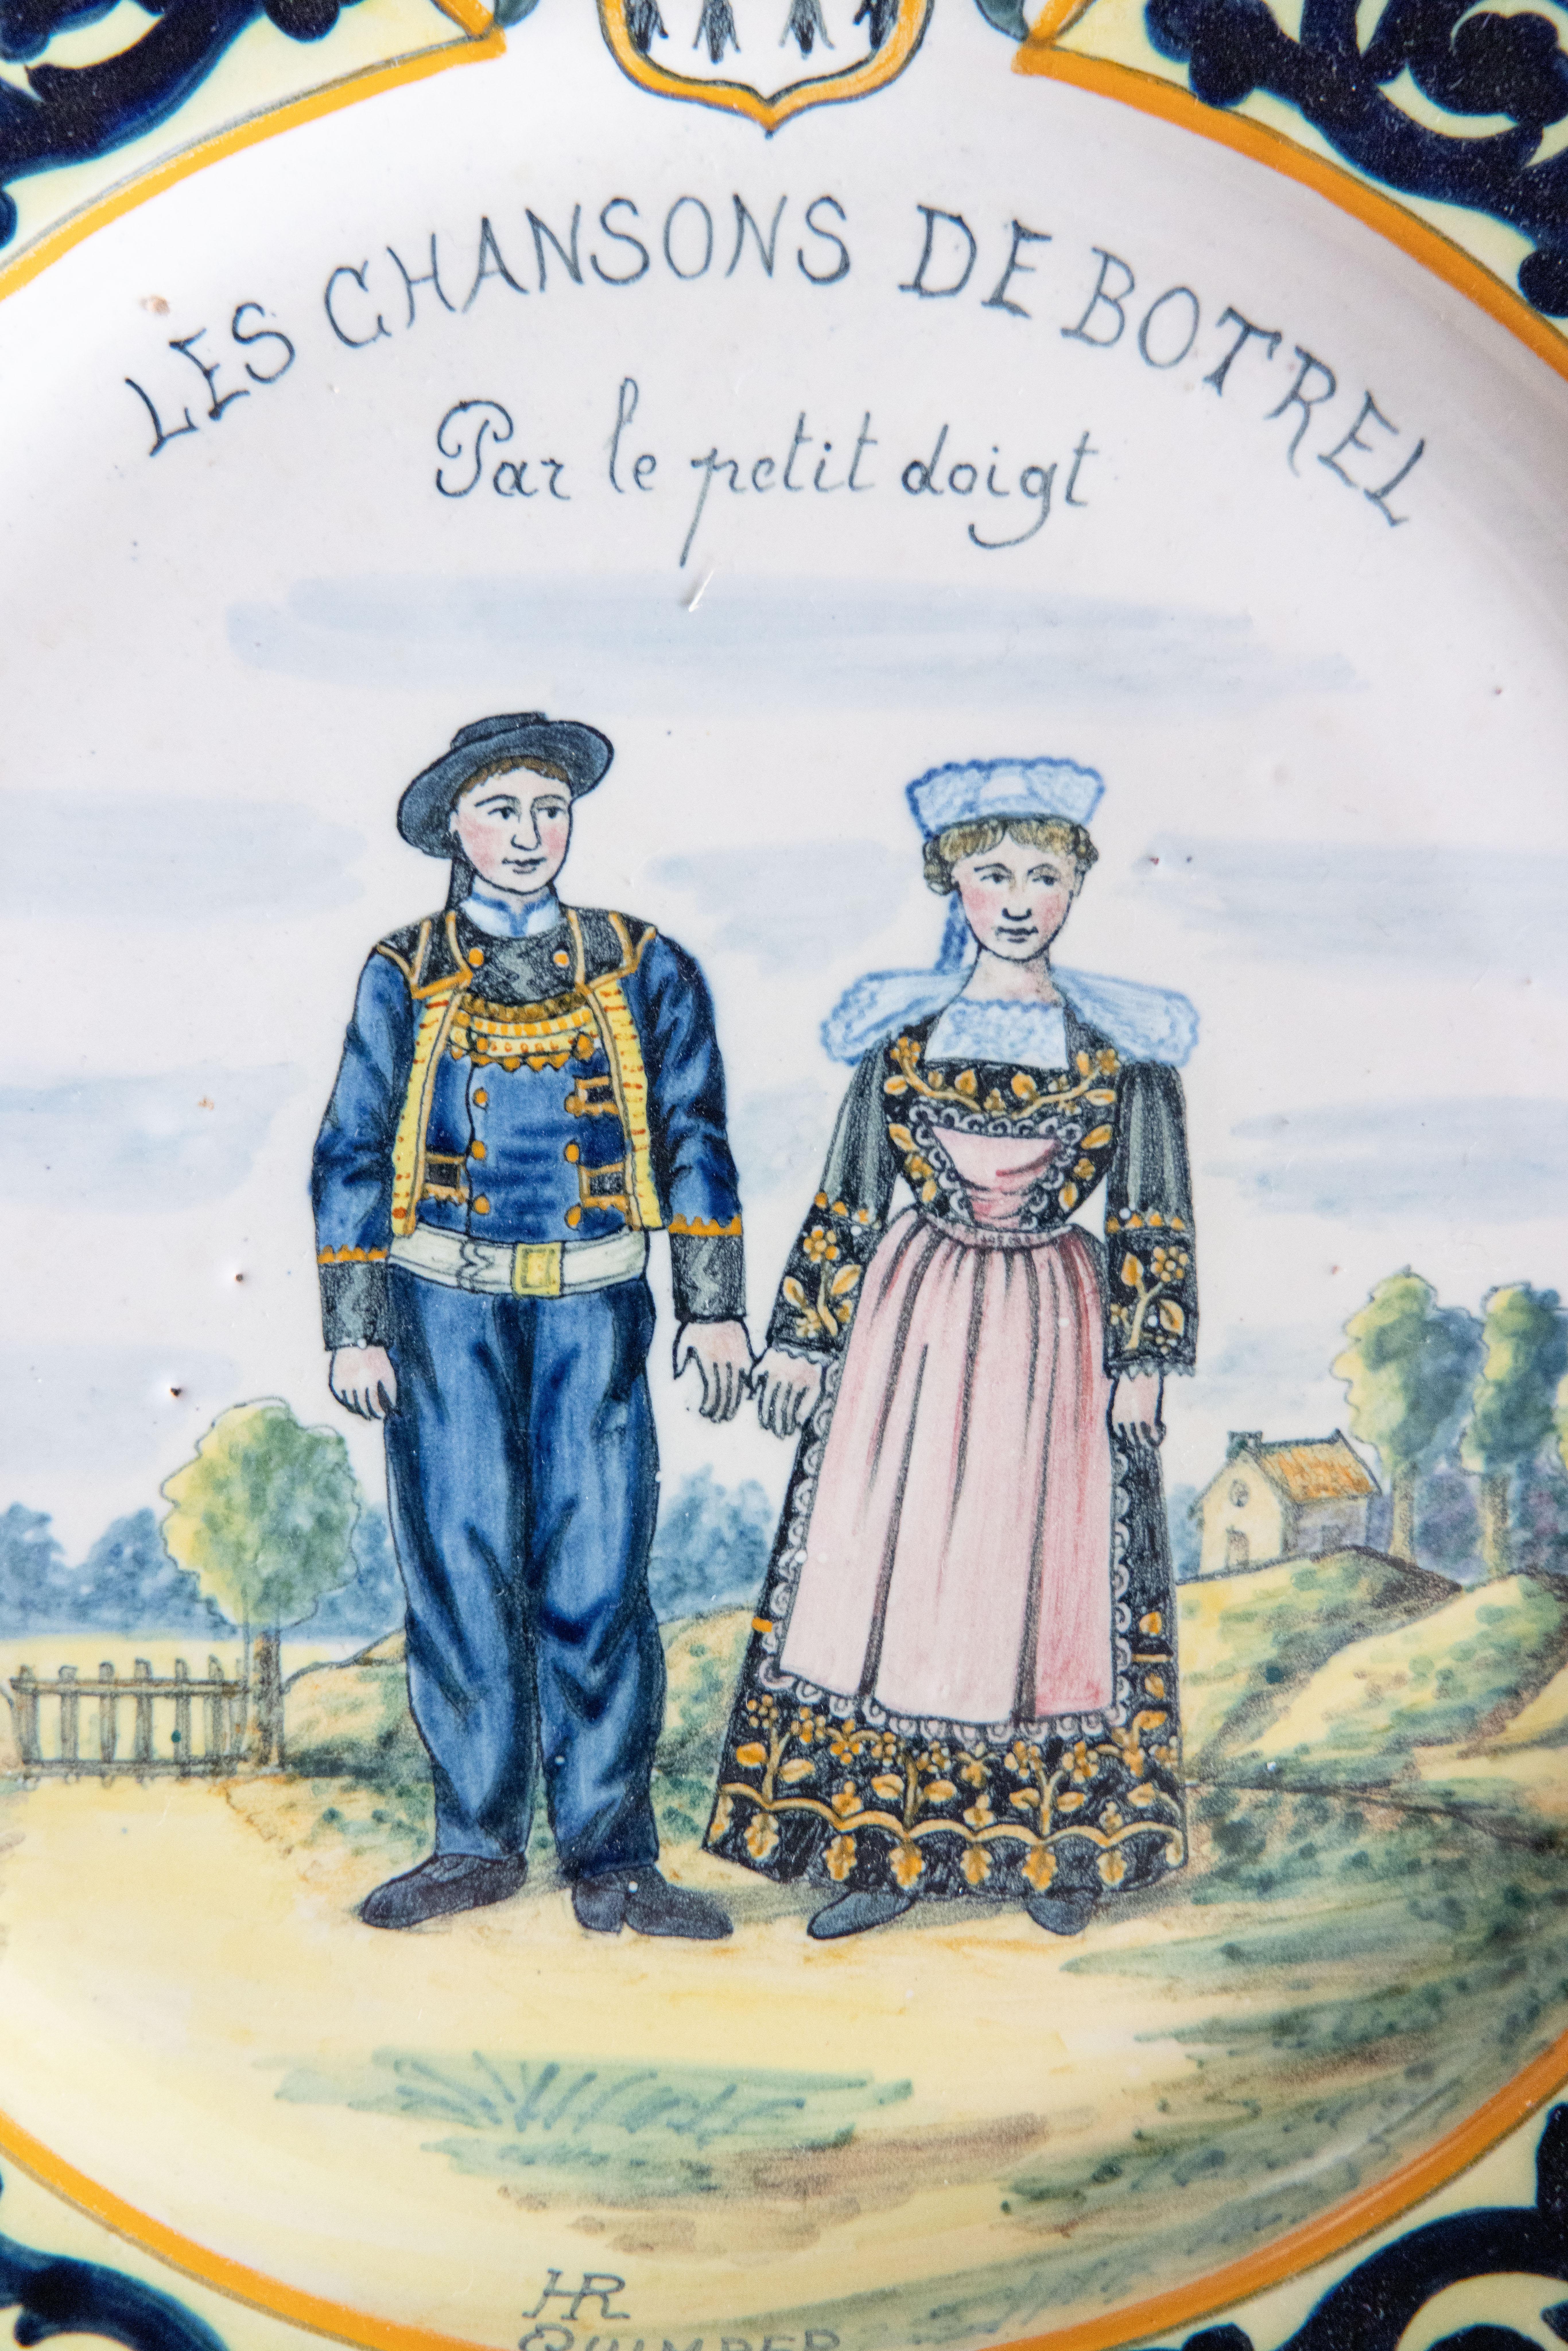 LES CHANSONS DE BOTREL
Par le petit doigt
HR
QUIMPER